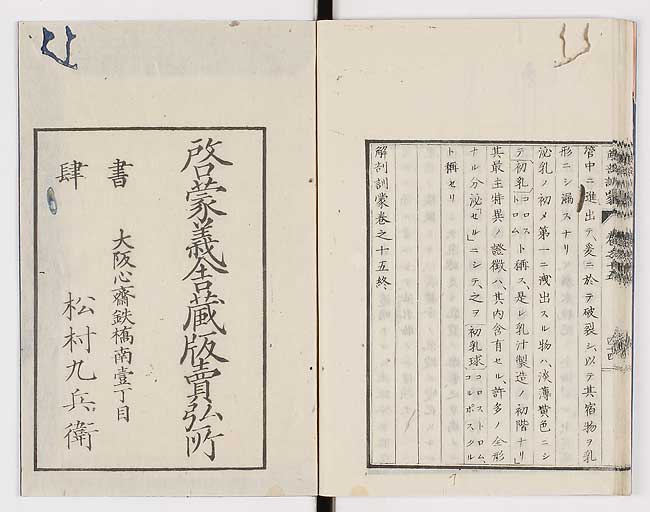 管中ニ進出テ爰ニ於テ破裂シ、以テ其宿物ヲ乳
形ニシ漏スナリ
泌乳ノ初メ第一ニ洩出スル物ハ、淡薄黄色ニシ
テ初乳コロストロムト稱ス、是レ乳汁製造ノ初階ナリ」
其最主特異ノ證徴ハ、其内含有セル、許多ノ全形
ナル分泌「セル」ニシテ、之ヲ初乳球コロストロム、コルポスクル
ト稱セリ
解剖訓蒙卷之十五終
啓蒙義舎蔵版賣弘所
大阪心齋鉄橋南壹丁目
書肆
松村九兵衛